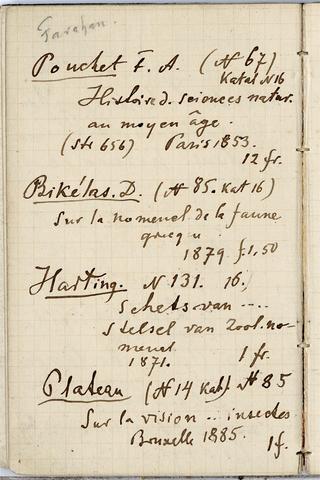 Pouchet F. A. (№ 67)
Katal № 16
Histoire d. sciences natur.
au moyen âge.
(Str 656) Paris 1853.
12 fr.
Bikélas. D. (№ 85. Kat 16)
Sur la nomencl de la faune
grecqu
1879. f. 1,50
Harting. N 131. 16.
Schets van ....
stelsel van Zool. no-
mencl
1871. 1 fr.
Plateau (№ 14 Kat) № 85
Sur la vision .. insectes
Bruxelle 1885.
1 f.